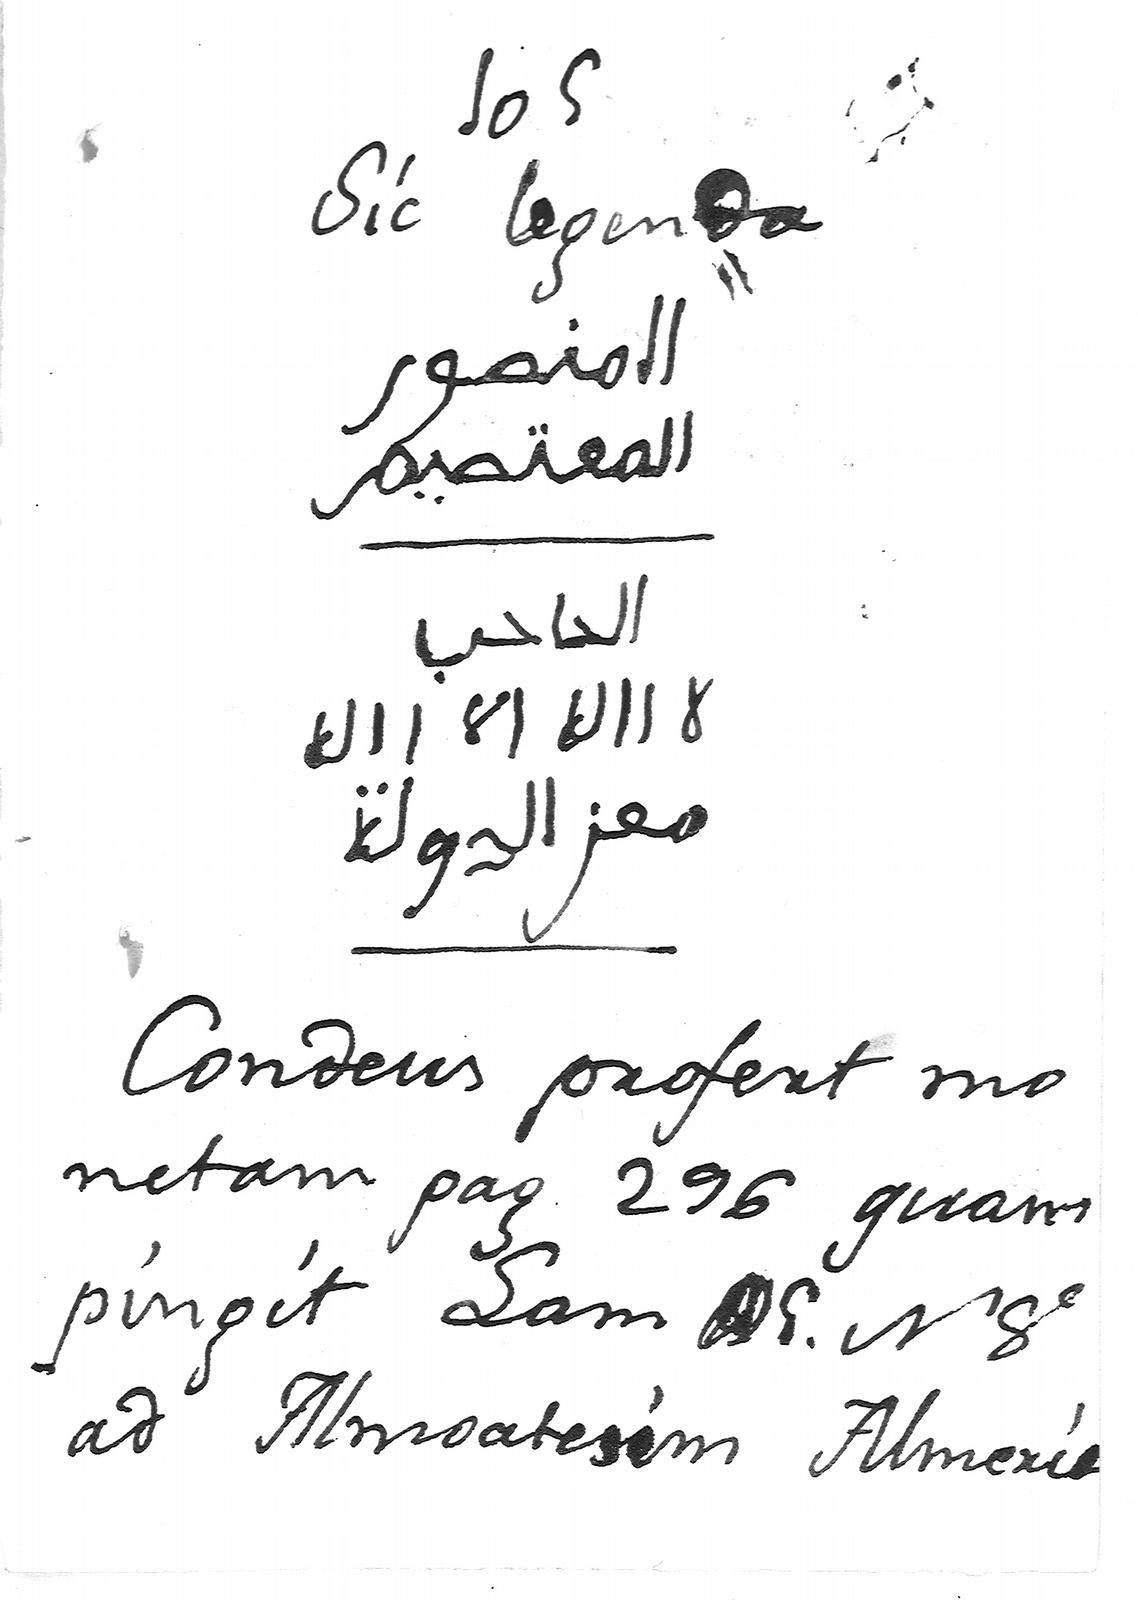 105
Sic legenda
المنصور
المعتصيم
الحاجب
لا االه الا االه
معز الدولة
Condeus profert mo
netam pag. 296 quam
pingit Lam 5. N 8º
ad Almoatesim Almeria